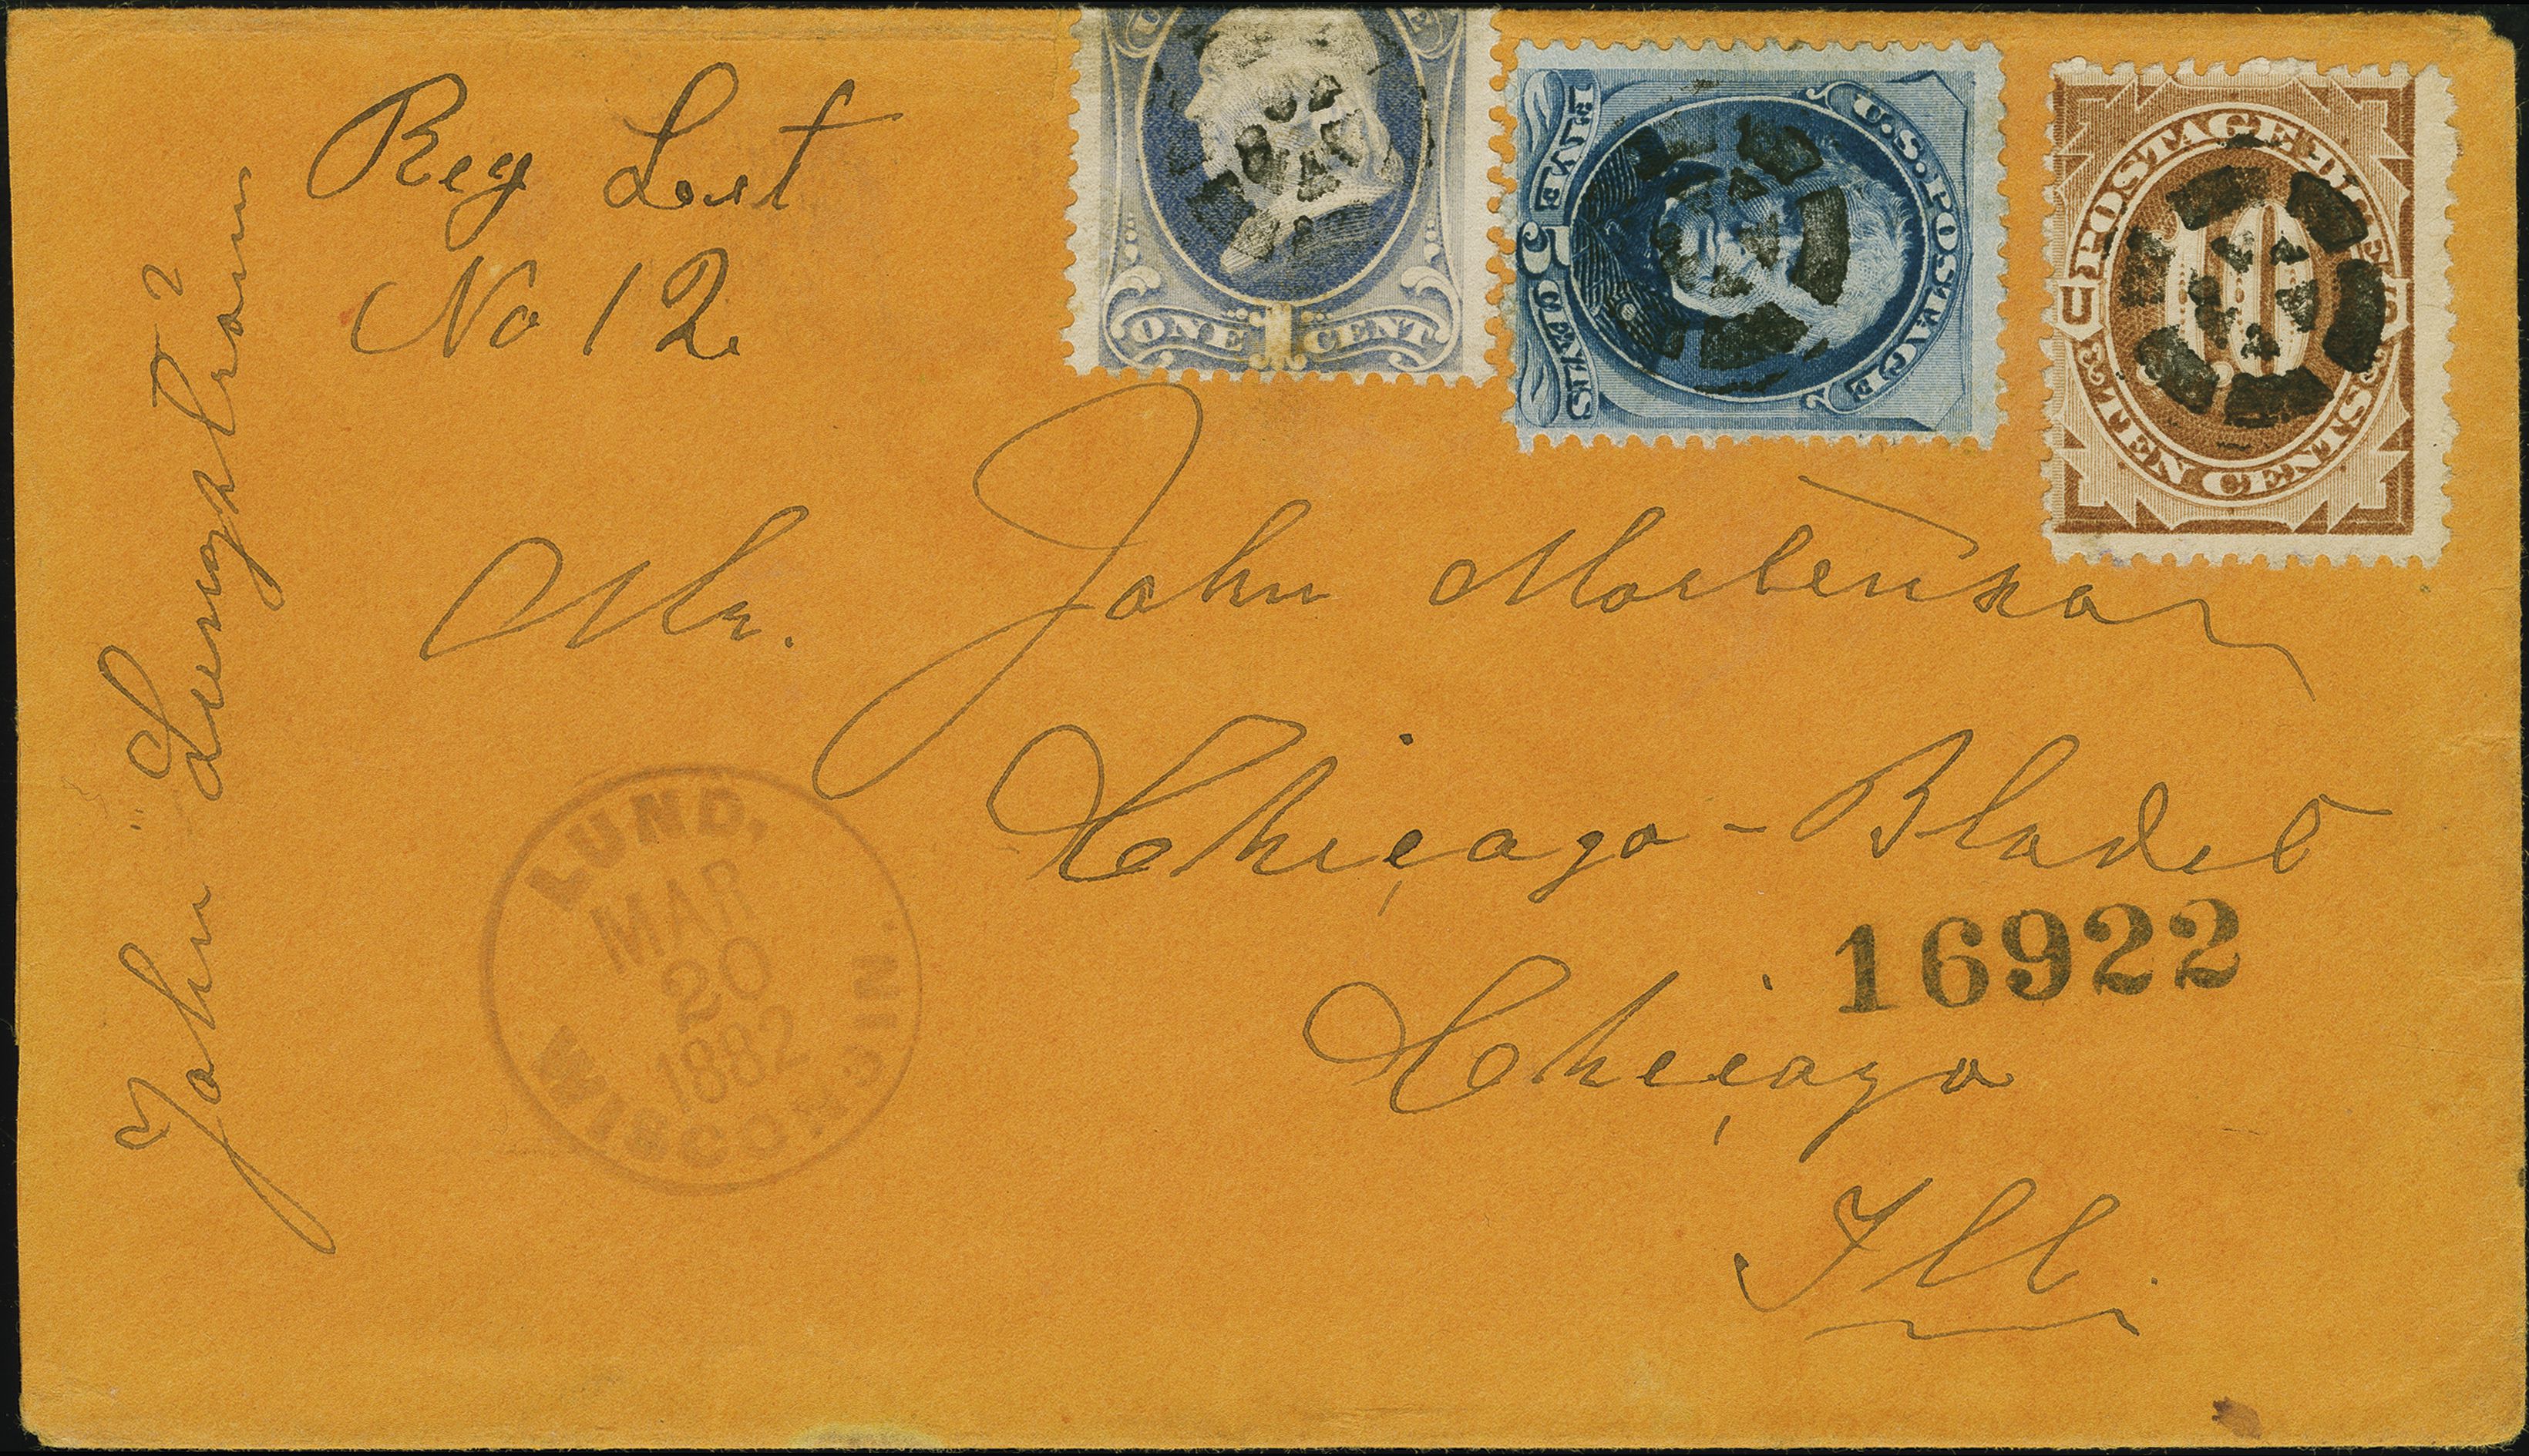 Reg Lext
No 12
John Ljungstrom
U.S. POSTAGE
ONE 1 CENT
U.S. POSTAGE
FIVE 5 CENTS
U S
POSTAGE DUE
10
TEN CENTS
Mr. John Mortenson
Chicago - Bladet
16922
Chicago
Ill.
LUND,
MAR
20
1882
WISCONSIN.